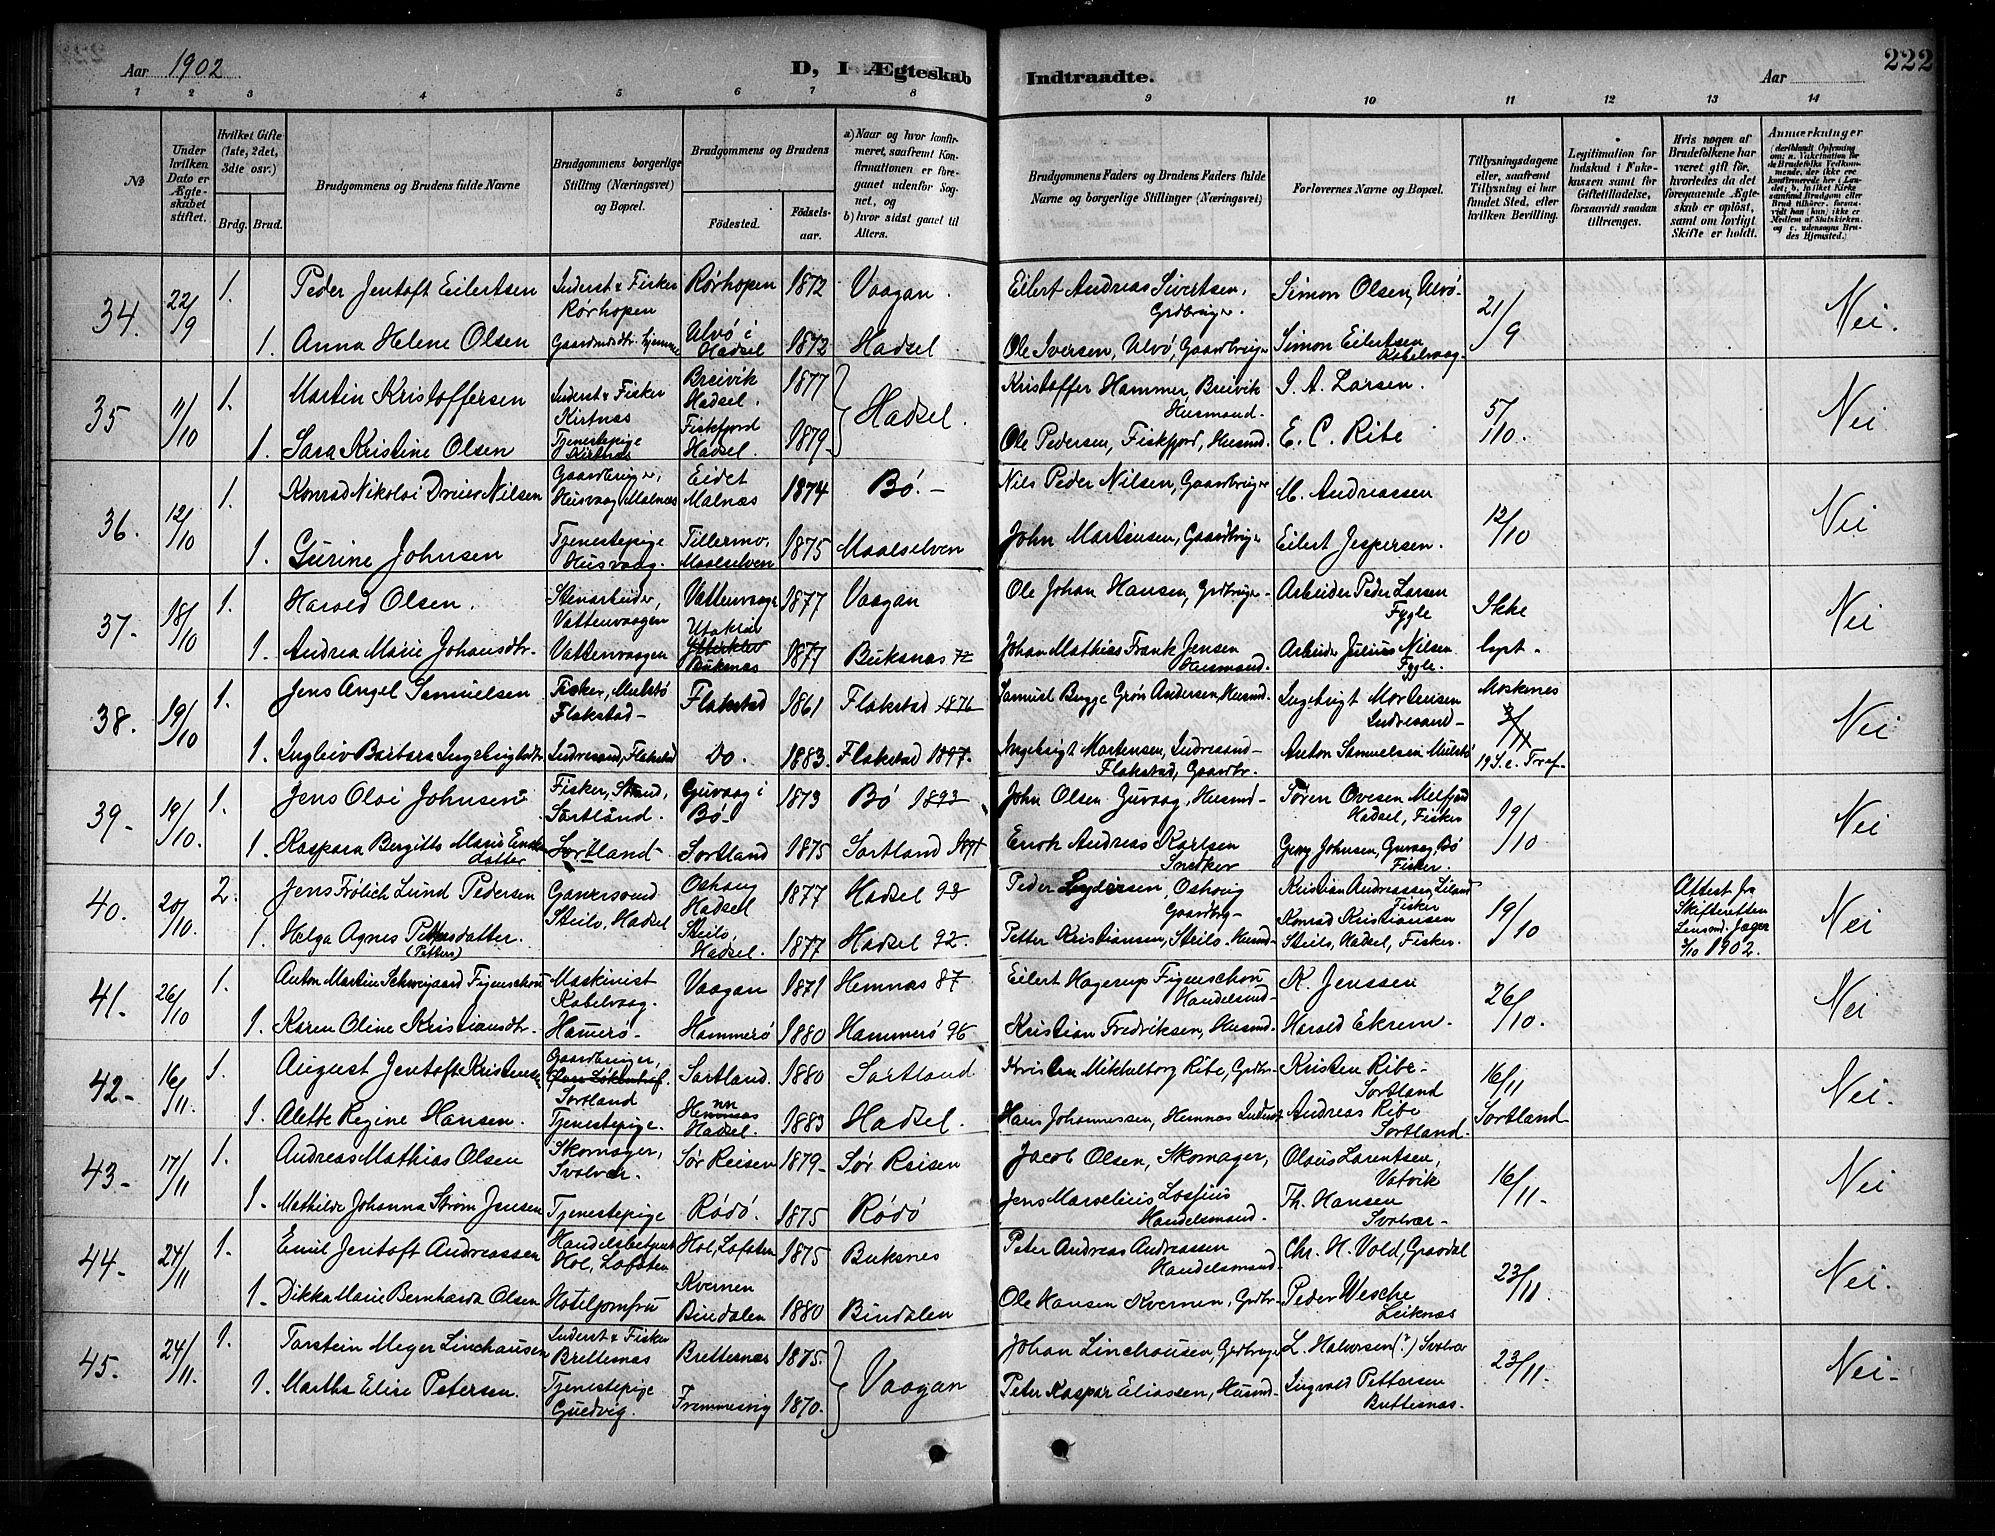 Aar 1902
D, I Ægteskab Indtraadte.
Aar
222
1 2 3 4 5 6 7 8 9 10 11 12 13 14
№
Under hvilken Dato er Ægteskabet stiftet.
Hvilket Gifte (1ste, 2det, 3die osv.)
Brdg. Brud.
Brudgommens og Brudens fulde Navne
Brudgommens borgerlige Stilling (Næringsvei) og Bopæl.
Brudgommens og Brudens
Fødested.
Fødselsaar.
a) Naar og hvor konfirmeret, saafremt Konfirmationen er foregaaet udenfor Sognet, og
b) hvor sidst gaaet til Alters.
Brudgommens Faders og Brudens Faders fulde Navne og borgerlige Stillinger (Næringsvei)
Forlovernes Navne og Bopæl.
Tillysningsdagene eller, saafremt Tillysning ei har fundet Sted, efter hvilken Bevilling.
Legitimation for Indskud i Enkekassen samt for Giftetilladelse, forsaavidt saadan tiltrænges.
Hvis nogen af Brudefolkene har været gift før, hvorledes da det foregaaende Ægteskab er opløst, samt om lovligt Skifte er holdt.
Anmærkninger
34. 22/9 1. Peder Jentoft Eilertsen Inderst & Fisker Rørhopen Rørhopen 1872 Vaagan. Eilert Andreas Sivertsen, Grdbruger. Simon Olsen, Ulvø. 21/9 Nei.
1. Anna Helene Olsen Gaardmdsdtr. hjemme Ulvø i Hadsel 1872 Hadsel. Ole Iversen, Ulvø, Gaardbruger Simon Eilertsen Kabelvaag.
35 11/10 1. Martin Kristoffersen Inderst & Fisker Kirtnæs Breivik Hadsel. 1877 Hadsel. Kristoffer Hammer, Breivik Husmand. I. A. Larsen. 5/10. Nei
1. Sara Kristine Olsen Tjenestepige Kirtnæs Fiskfjord Hadsel. 1879 Ole Pedersen, Fiskfjord, Husmd. E. C. Ribe
36. 12/10 1. Konrad Nikolai Dreier Nilsen Gaardbruger, Husvaag, Malnæs Eidet Malnæs 1874 Bø. Nils Peder Nilsen, Gaardbruger M. Andreassen 12/10 Nei
1. Gurine Johnsen Tjenestepige Husvaag. Tillermo, Maalselven 1875 Maalselven John Martinsen, Gaardbruger Eilert Jespersen.
37. 18/10 1. Harald Olsen. Stenarbeider, Vattenvaagen Vattenvaagen 1877 Vaagan Ole Johan Hansen, Grdbruger Arbeider Peder Larsen Fygle Ikke lyst. Nei
1. Andrea Marie Johansdtr. Vattenvaagen Utakleiv Buksnæs 1877 Buksnæs Johan Mathias Frank Jensen Husmand. Arbeider Julius Nilsen Fygle.
38. 19/10 1. Jens Angel Samuelsen Fisker, Mulstø Flakstad Flakstad 1861 Flakstad 1876 Samuel Bugge Grøn Andersen, Husmd. Ingebrigt Mortensen Indresand Moskenes Nei
1. Ingleiv Barbara Ingebrigtsdtr Indresand, Flakstad Do. 1883. Flakstad 1897. Ingebrigt Mortensen, Indresand Flakstad, Gaardbr. Anton Samuelsen Mulstø 19 S. e. Tref.
39 19/10. 1. Jens Olai Johnsen Fisker, Strand, Sortland. Guvaag i Bø. 1873 Bø 1893 John Olsen Guvaag, Husmd Søren Ovesen Melfjord Hadsel, Fisker 19/10 Nei
1. Kaspara Bergitte Marie Enoksdatter Sortland Sortland 1875 Sortland 1891 Enok Andreas Karlsen Snedker Georg Johnsen, Guvaag, Bø Fisker.
40. 20/10. 2. Jens Frølich Lund Pedersen Gankesund Steilo, Hadsel Oshaug Hadsel 1877 Hadsel 93 Peder Lydersen, Oshoug Gaardbrg Kristian Andreassen, Liland Fisker 19/10 Attest fra Skifteretten Lensmd. Jæger 3/10 1902. Nei
1. Helga Agnes Pettersdatter. (Petters) Steilo, Hadsel. 1877 Hadsel 92. Petter Kristiansen, Steilo Husmd Konrad Kristiansen Steilo, Hadsel, Fisker.
41. 26/10 1. Anton Martin Schweigaard Figenschou Maskinist Kabelvaag. Vaagan 1871 Hemnæs 87 Eilert Hagerup Figenschou Handelsmd. K. Jenssen 26/10. Nei
1. Karen Oline Kristiansdtr. Hamerø Hammerø 1880 Hammerø 96 Kristian Fredriksen, Husmd. Harald Ekrem.
42 16/11. 1. August Jentoft Kristensen Gaardbruger, Sortland Sortland. 1880 Sortland Kristen Mikkelborg Ribe, Grdbr. Kristen Ribe Sortland 16/11 Sortland Nei.
1. Alette Regine Hansen. Tjenestepige. Hennes Hadsel. 1883 Hadsel. Hans Johannessen, Hennæs Inderst Andreas Ribe Sortland.
43 17/11 1. Andreas Mathias Olsen Skomager, Svolvær. Sør Reisen 1879 Sør Reisen Jacob Olsen, Skomager, Olaus Larentsen, Vatvik 16/11. Nei
1. Mathilde Johanna Strøm Jensen Tjenestepige Rødø. 1875 Rødø Jens Marselius Losfius Handelsmand. Th. Hansen Svolvær
44 24/11 1. Emil Jentoft Andreassen Handelsbetjent Hol, Lofoten Hol, Lofoten 1875 Buksnes Peter Andreas Andreassen Handelsmand Chr. H. Vold, Gravdal 23/11. Nei.
1. Dikka Marie Bernharda Olsen Hoteljomfru Kvernen Bindalen 1880 Bindalen Ole Hansen Kvernen, Grdbr. Peder Wesche Leiknæs
45. 24/11. 1. Torstein Meyer Linchausen Inderst & Fisker Brettesnæs Brettesnæs 1875. Vaagan Johan Linchousen, Grdbruger L. Halvorsen (?) Svolvær 23/11. Nei
1. Martha Elise Petersen. Tjenestepige Gjuedvig. Fremmesvig 1870. Peter Kaspar Eliassen, Husmd Ingvald Pettersen Brettesnæs.